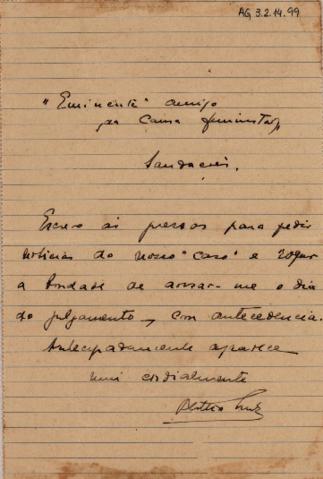 AG 3.2.14.99
"Eminente" amigo
da Causa feminista,
Saudações.
Escrevo às pressas para pedir
noticias do nosso "caso" e rogar
a bondade de avisar-me o dia
do julgamento, com antecedencia.
Antecipadamente agradece
mui cordialmente